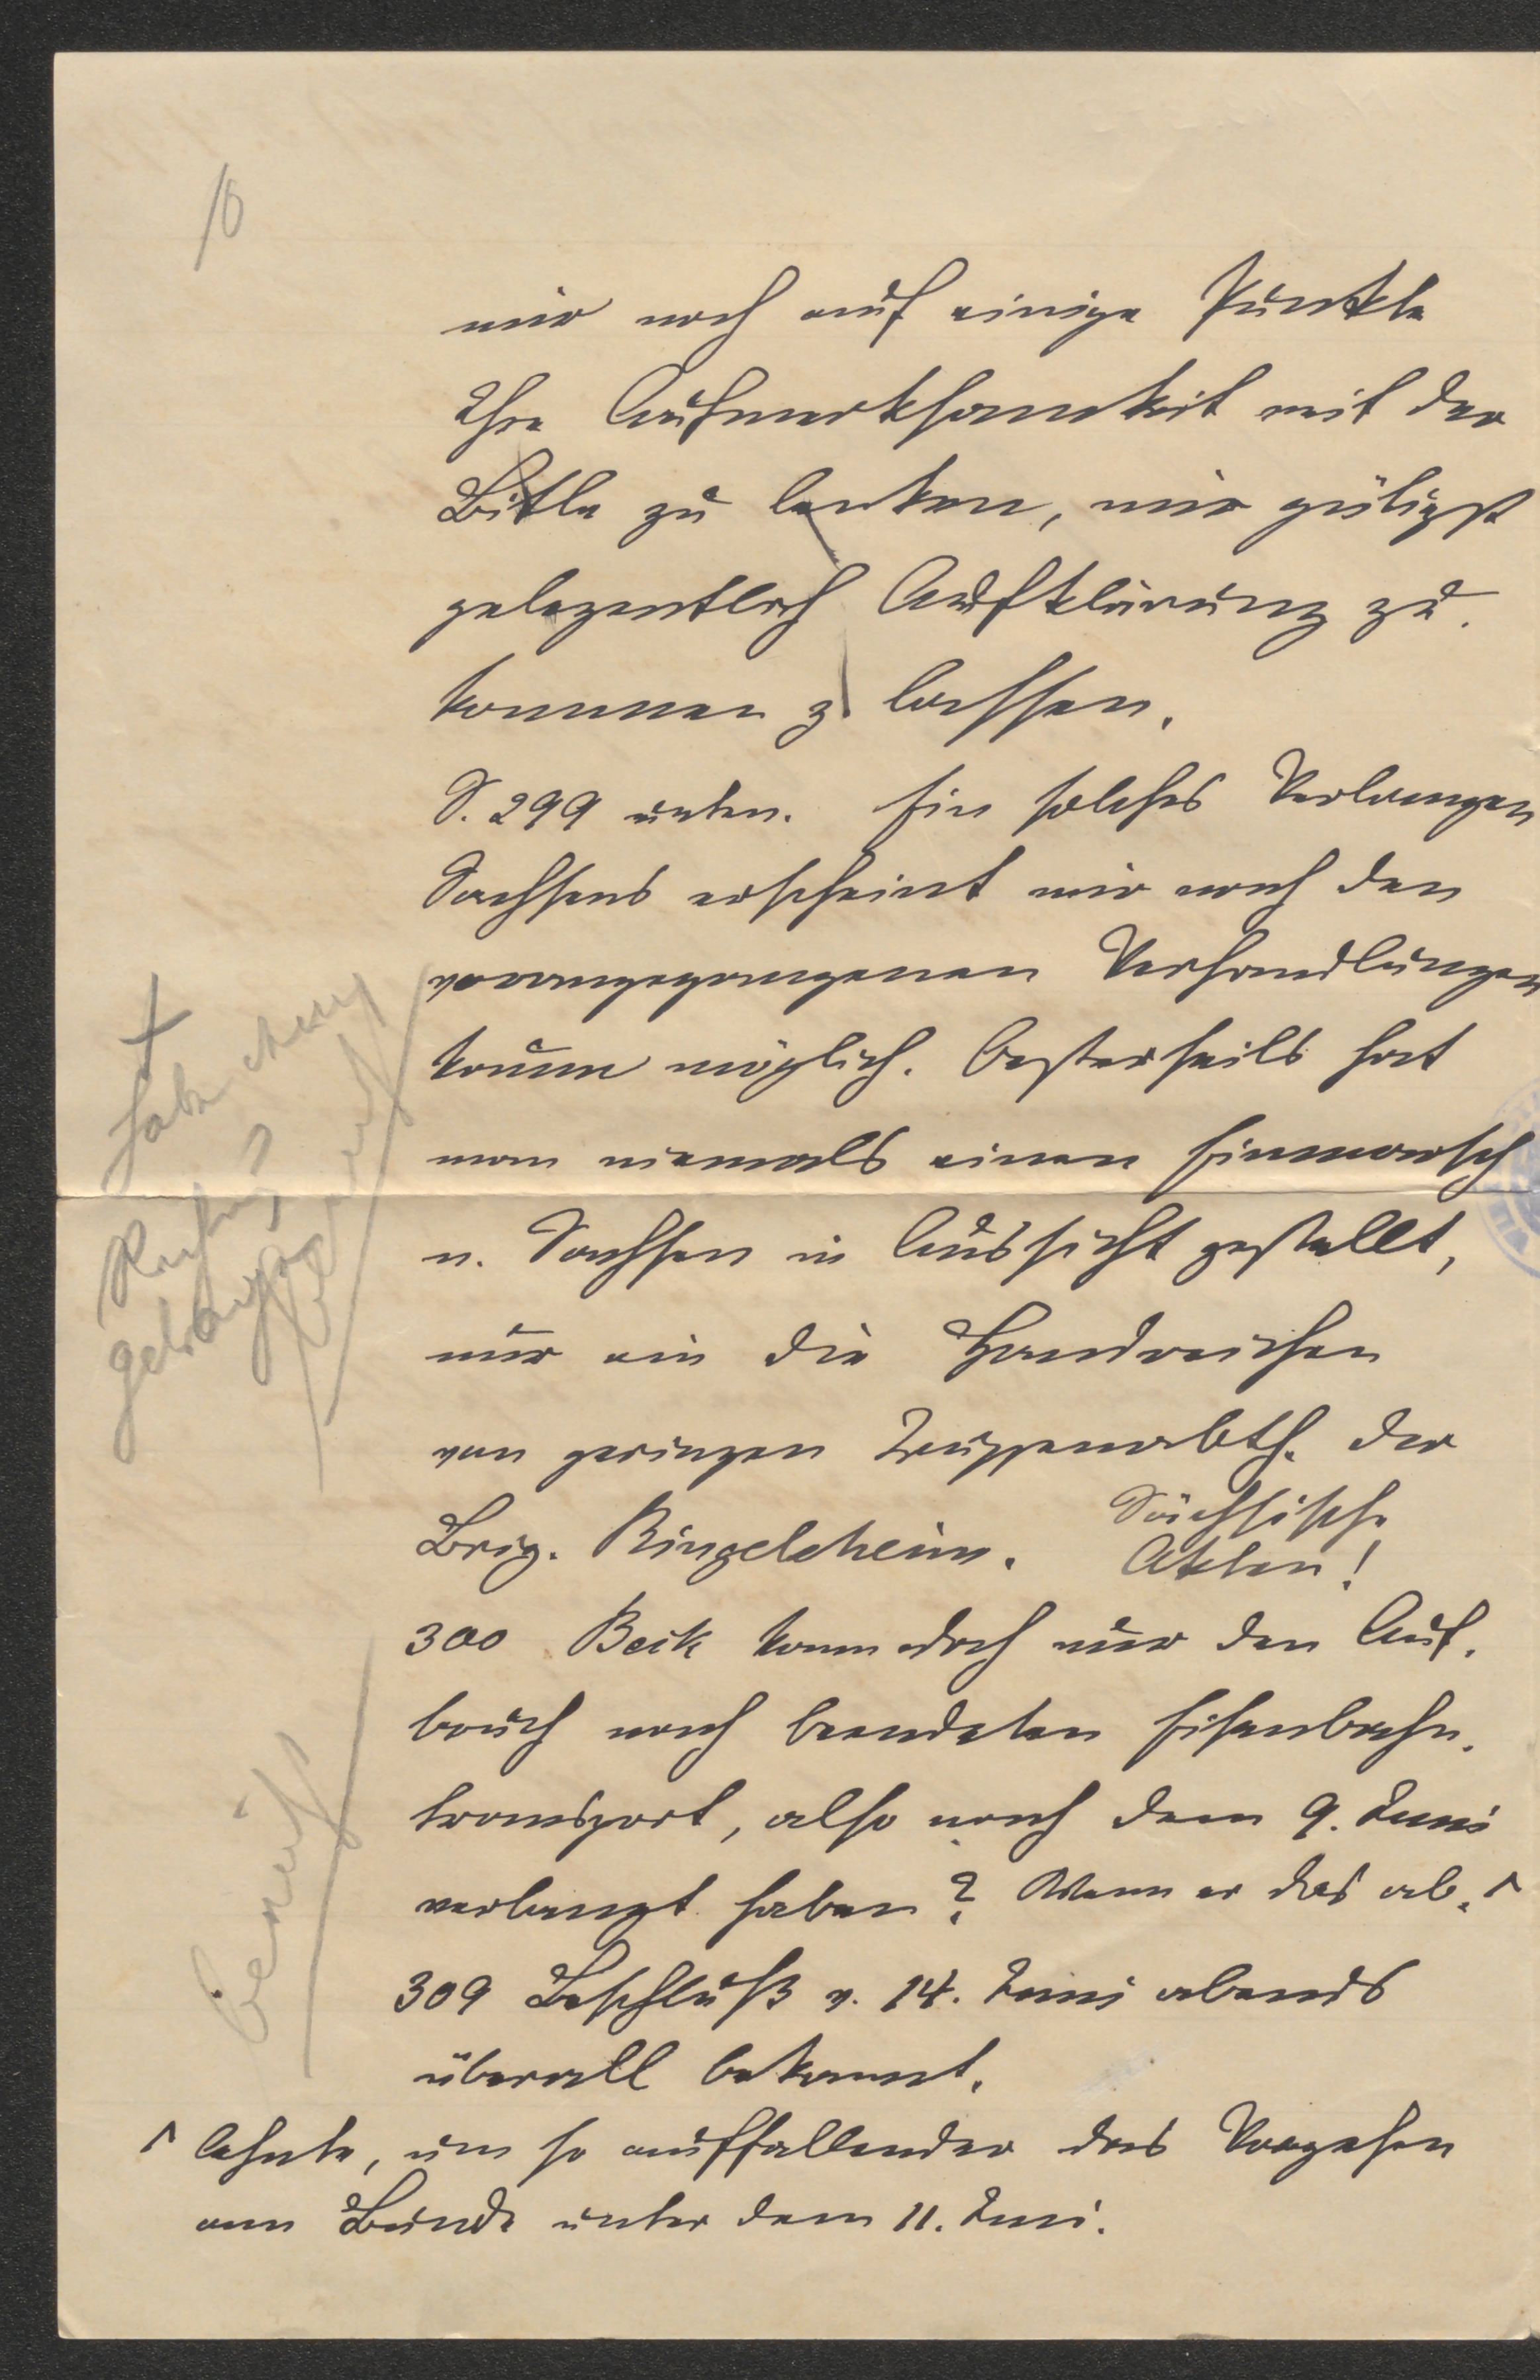 10
mir noch auf einige Punkte
Ihre Aufmerksamkeit mit der
Bitte zu lenken, mir gütigst
gelegentlich Aufklärung zu-
kommen z lassen.
S. 299 unten. Ein solches Verlangen
Sachsens erscheint mir nach den
vorangegangenen Verhandlungen
kaum möglich. Oesterreichs hat
man niemals einen Einmarsch
n. Sachsen in Aussicht gestellt,
nur ein die Handreichen
von geringen Truppenabth. der
Brig. Ringelsheim. Sächsische
Akten!
300 Beck kann doch nur den Auf-
bruch nach beendeten Eisenbahn-
transport, also nach dem 9. Juni
verlangt haben? Wenn er das ab-
309 Beschluß v. 14. Juni abends
überall bekannt.
lehnte, um so auffallender das Vorgehen
am Bunde unter dem 11. Juni.
habe